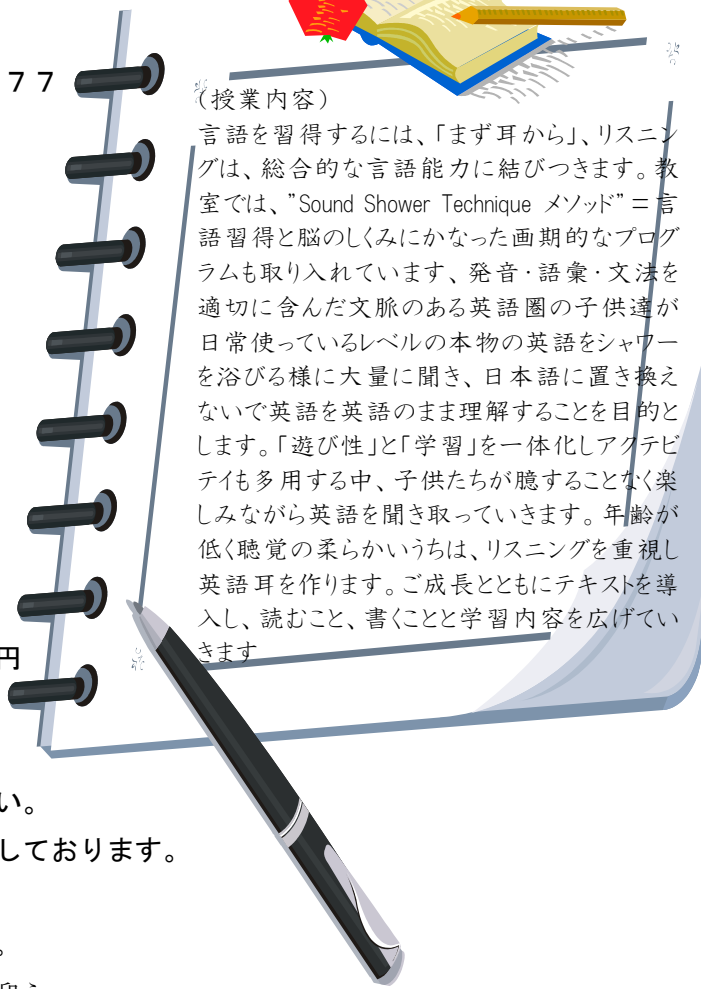 ７７
（授業内容）
言語を習得するには、「まず耳から」、リスニン
グは、総合的な言語能力に結びつきます。教
室では、”Sound Shower Technique メソッド”＝言
語習得と脳のしくみにかなった画期的なプログ
ラムも取り入れています、発音・語彙・文法を
適切に含んだ文脈のある英語圏の子供達が
日常使っているレベルの本物の英語をシャワー
を浴びる様に大量に聞き、日本語に置き換え
ないで英語を英語のまま理解することを目的と
します。「遊び性」と「学習」を一体化しアクテビ
テイも多用する中、子供たちが臆することなく楽
しみながら英語を聞き取っていきます。年齢が
低く聴覚の柔らかいうちは、リスニングを重視し
英語耳を作ります。ご成長とともにテキストを導
入し、読むこと、書くことと学習内容を広げてい
きます
円
い。
しております。
。